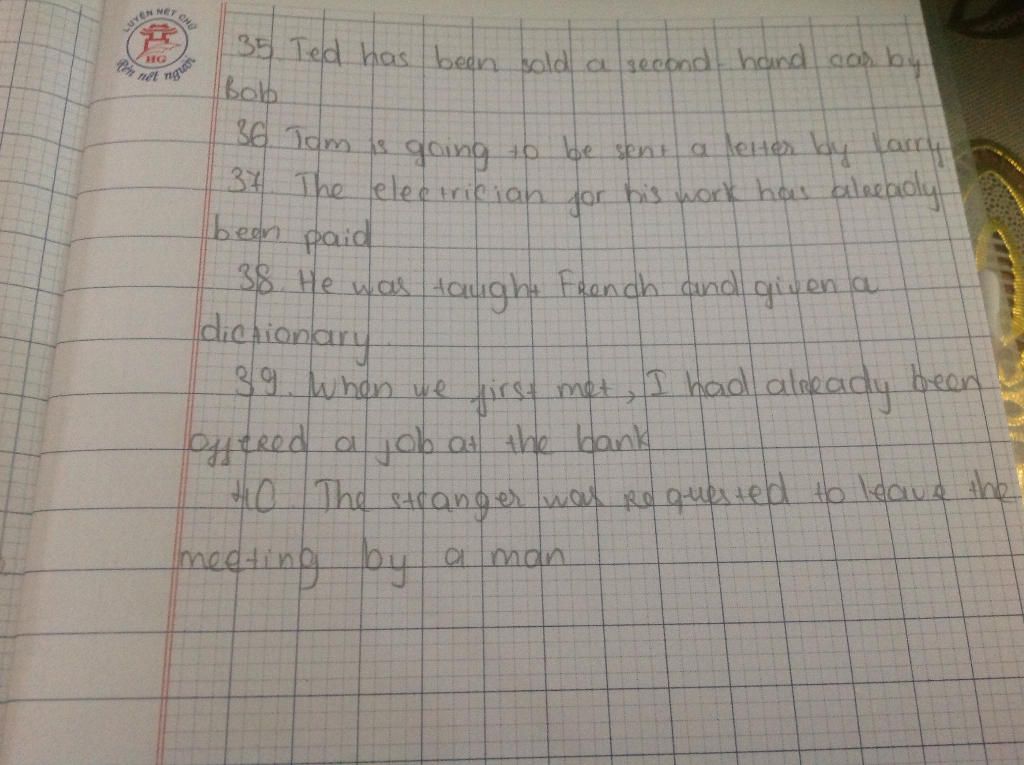 LUYỆN NÉT CHỮ
HG
Rèn nết người
35. Ted has been sold a second-hand car by
Bob
36. Tom is going to be sent a letter by Larry
37. The electrician for his work has already
been paid
38. He was taught French and given a
dictionary.
39. When we first met, I had already been
offered a job at the bank
40. The stranger was requested to leave the
meeting by a man